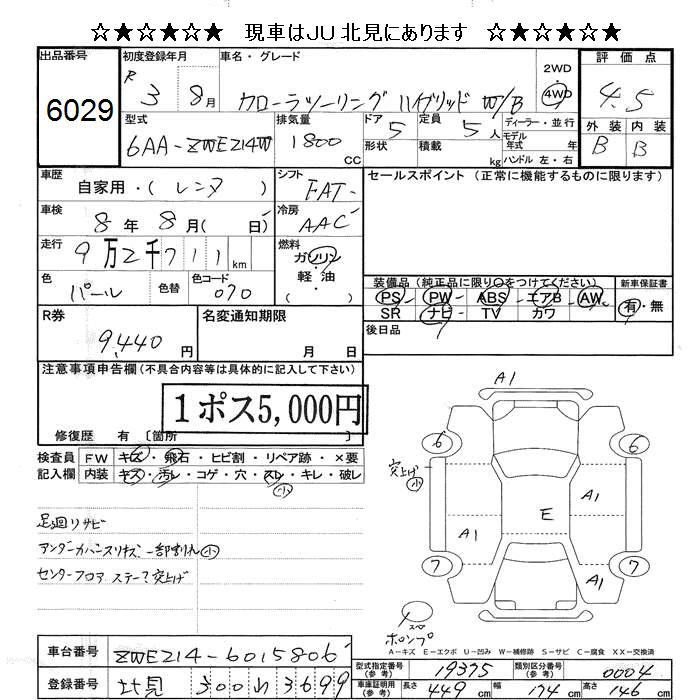 ☆★☆★☆★ 現車はJU北見にあります ☆★☆★☆★
出品番号 初度登録年月 車名・グレード 評価点
6029 R 3 8月 カローラツーリング ハイブリッド W/B 2WD 4WD 4.5
型式 排気量 ドア 定員 ディーラー・並行 外装 内装
6AA-ZWE214W 1800 CC 5 5人 モデル年式 年 B B
形状 積載 kg ハンドル 左・右
車歴 シフト セールスポイント (正常に機能するものに限ります)
自家用・(レンタ) FAT
車検 冷房
8年 8月( 日) AAC
走行 燃料
9万2千711km ガソリン・軽・油
色 色替 色コード 装備品 (純正品に限り○をつけてください) 新車保証書
パール 070 PS PW ABS エアB AW 有・無
SR ナビ TV カワ
R券 名変通知期限 後日品
9,440円 月 日
注意事項申告欄(不具合内容等は具体的に記入して下さい)
1ポス5,000円
修復歴 有 〔箇所
検査員 FW キズ・飛石・ヒビ割・リペア跡・×要
記入欄 内装 キズ・汚レ・コゲ・穴・スレ・キレ・破レ
小
足廻リサビ
アンダーカバースリキズ・一部割れ小
センターフロア ステー?突上げ
A1
6 6
突上げ
小
A1
A1 E
7 A1 7
スペ
ボンプ
A-キズ E-エクボ U-凹み W-補修跡 S-サビ C-腐食 XX-交換済
車台番号 ZWE214-6015806
型式指定番号(参考) 19375 類別区分番号(参考) 0004
登録番号 北見 300 わ 3699
車庫証明用(参考) 長さ 449cm 幅 174cm 高さ 146cm